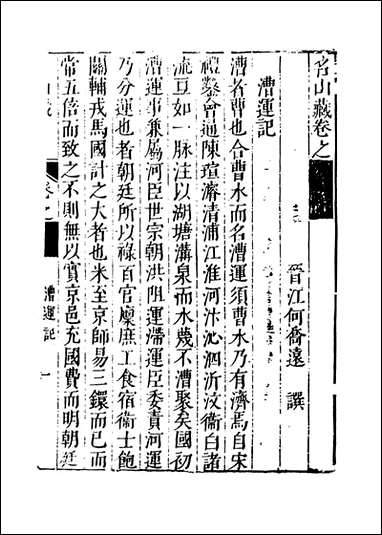 名山藏卷之
晉江何喬遠 譔
漕運記
漕者曹也合曹水而名漕運須曹水乃有濟焉自宋
禮鑿會通陳瑄濬清浦江淮河汴沁泗沂汶衞白諸
流亘如一脉注以湖塘溝泉而水幾不漕聚矣國初
漕運事兼屬河臣世宗朝洪阻運滯運臣委責河運
乃分運也者朝廷所以祿百官廩庶工食宿衞士飽
關輔戎馬國計之大者也米至京師易三鐶而已而
常五倍而致之不則無以實京邑充國費而明朝廷
卷之
漕運記
一